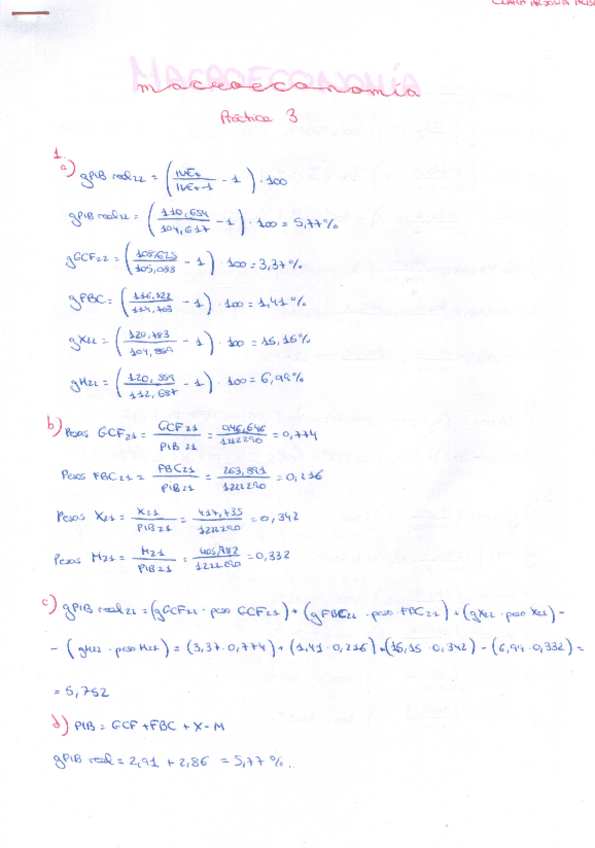 macroeconomía
Práctica 3
1.
a) gPIB real22 = (IVEt / IVEt-1 - 1) · 100
gPIB real22 = (110,654 / 104,617 - 1) · 100 = 5,77%
gGCF22 = (108,625 / 105,088 - 1) · 100 = 3,37%
gFBC = (116,321 / 114,703 - 1) · 100 = 1,41%
gX22 = (120,783 / 104,899 - 1) · 100 = 15,15%
gM22 = (120,554 / 112,687 - 1) · 100 = 6,99%
b) Pesos GCF21 = GCF21 / PIB21 = 946,646 / 1222290 = 0,774
Pesos FBC21 = FBC21 / PIB21 = 263,891 / 1222290 = 0,216
Pesos X21 = X21 / PIB21 = 417,735 / 1222290 = 0,342
Pesos M21 = M21 / PIB21 = 405,982 / 1222290 = 0,332
c) gPIB real22 = (gGCF22 · peso GCF21) + (gFBC22 · peso FBC21) + (gX22 · peso X21) -
- (gM22 · peso M21) = (3,37·0,774) + (1,41·0,216) + (15,15·0,342) - (6,99·0,332) =
= 5,752
d) PIB = GCF + FBC + X - M
gPIB real = 2,91 + 2,86 = 5,77%.